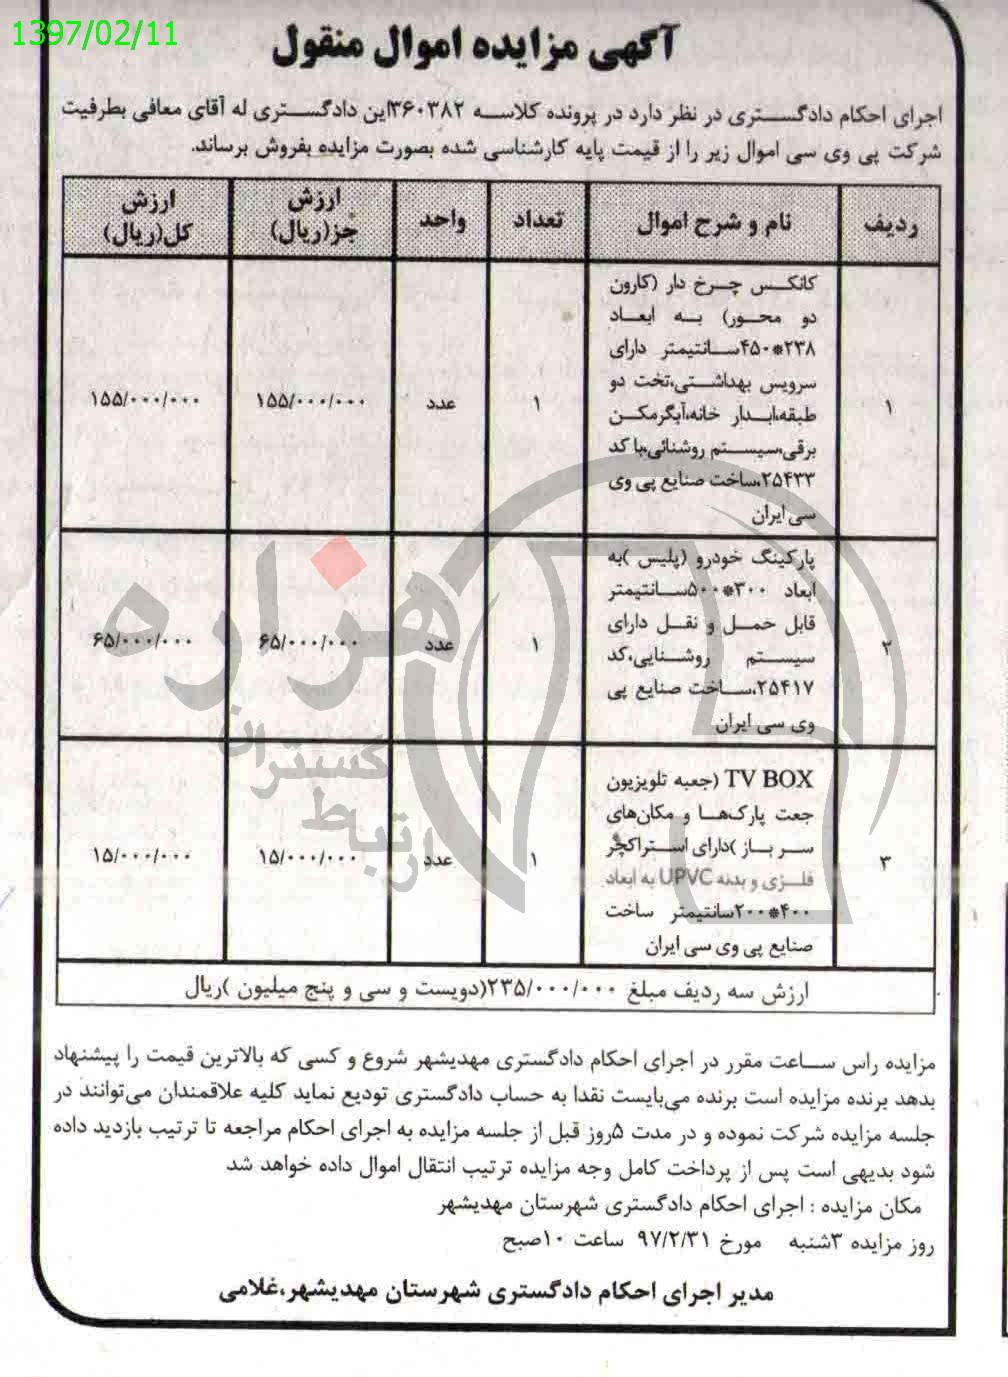 1397/02/11
آگهی مزایده اموال منقول
اجرای احکام دادگستری در نظر دارد در پرونده کلاسه ۳۶۰۳۸۲این دادگستری له آقای معافی بطرفیت
شرکت پی وی سی اموال زیر را از قیمت پایه کارشناسی شده بصورت مزایده بفروش برساند.
ردیف نام و شرح اموال تعداد واحد ارزش جز(ریال) ارزش کل(ریال)
کانکس چرخ دار (کارون
دو محور) به ابعاد
۲۳۸*۴۵۰سانتیمتر دارای
سرویس بهداشتی،تخت دو
طبقه،ابدار خانه،آبگرمکن
برقی،سیستم روشنائی،با کد
۲۵۴۳۳،ساخت صنایع پی وی
سی ایران
۱ ۱ عدد ۱۵۵/۰۰۰/۰۰۰ ۱۵۵/۰۰۰/۰۰۰
پارکینگ خودرو (پلیس )به
ابعاد ۳۰۰*۵۰۰سانتیمتر
قابل حمل و نقل دارای
سیستم روشنایی،کد
۲۵۴۱۷،ساخت صنایع پی
وی سی ایران
۲ ۱ عدد ۶۵/۰۰۰/۰۰۰ ۶۵/۰۰۰/۰۰۰
TV BOX (جعبه تلویزیون
جعت پارک‌ها و مکان‌های
سر باز )دارای استراکچر
فلزی و بدنه UPVC به ابعاد
۴۰۰*۲۰۰سانتیمتر ساخت
صنایع پی وی سی ایران
۳ ۱ عدد ۱۵/۰۰۰/۰۰۰ ۱۵/۰۰۰/۰۰۰
ارزش سه ردیف مبلغ ۲۳۵/۰۰۰/۰۰۰(دویست و سی و پنج میلیون )ریال
مزایده راس ساعت مقرر در اجرای احکام دادگستری مهدیشهر شروع و کسی که بالاترین قیمت را پیشنهاد
بدهد برنده مزایده است برنده می‌بایست نقدا به حساب دادگستری تودیع نماید کلیه علاقمندان می‌توانند در
جلسه مزایده شرکت نموده و در مدت ۵روز قبل از جلسه مزایده به اجرای احکام مراجعه تا ترتیب بازدید داده
شود بدیهی است پس از پرداخت کامل وجه مزایده ترتیب انتقال اموال داده خواهد شد
مکان مزایده : اجرای احکام دادگستری شهرستان مهدیشهر
روز مزایده ۳شنبه مورخ ۹۷/۲/۳۱ ساعت ۱۰صبح
مدیر اجرای احکام دادگستری شهرستان مهدیشهر،غلامی
هزاره
گستران
ارتباط